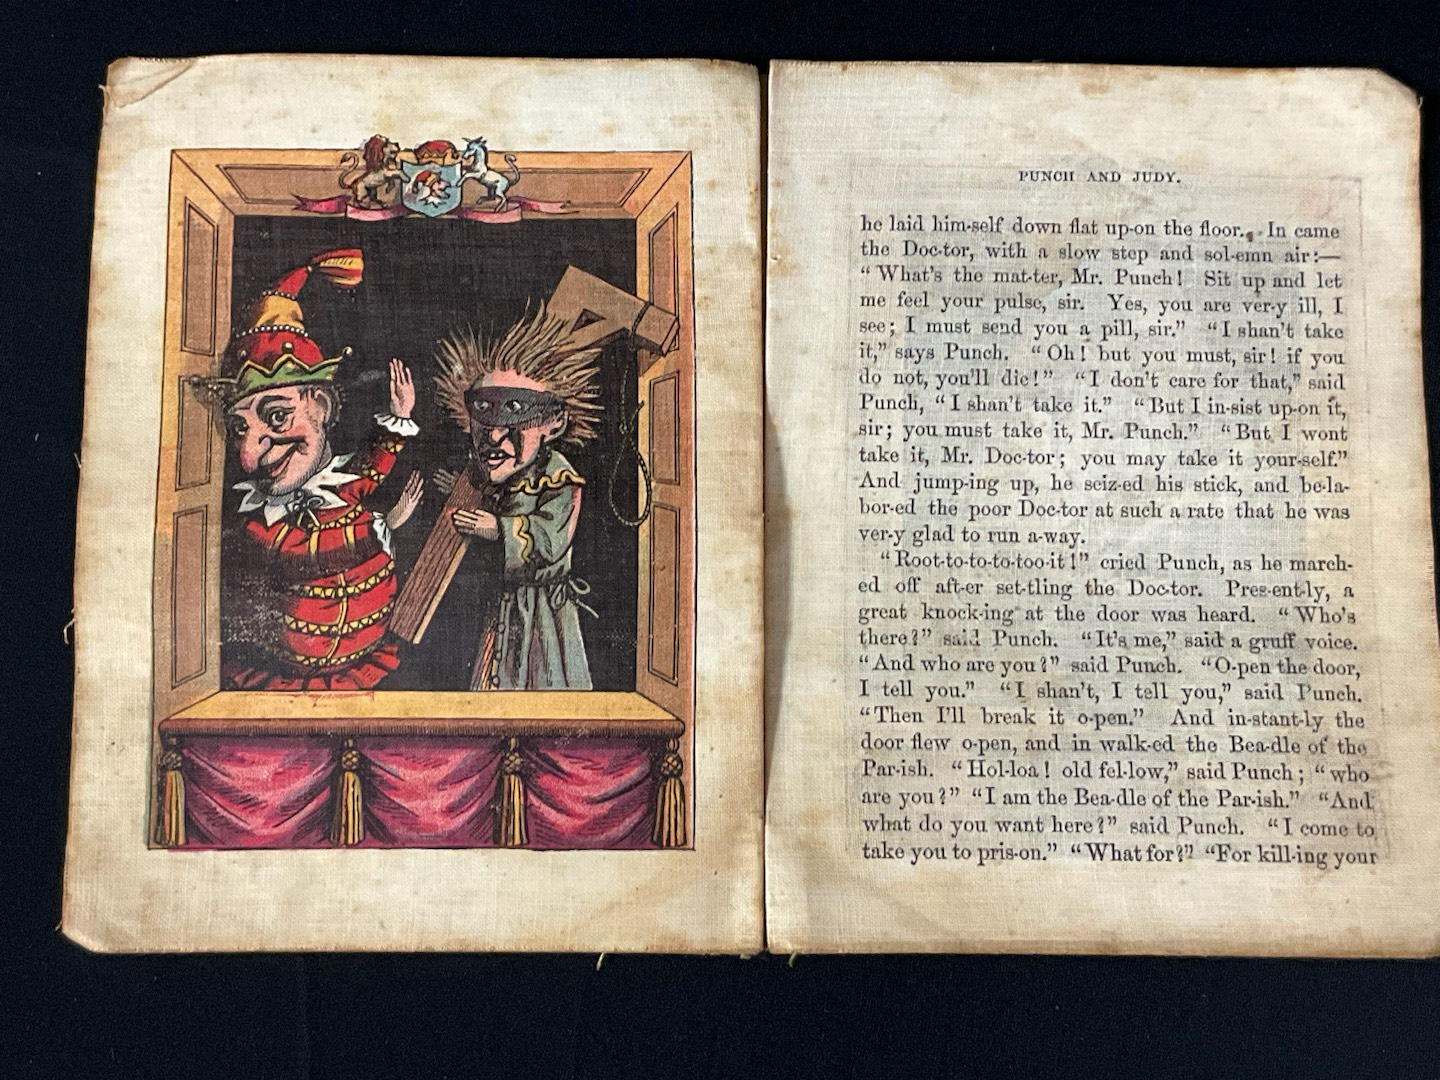 PUNCH AND JUDY.
he laid him-self down flat up-on the floor. In came
the Doc-tor, with a slow step and sol-emn air:—
“What's the mat-ter, Mr. Punch! Sit up and let
me feel your pulse, sir. Yes, you are ver-y ill, I
see; I must send you a pill, sir.” “I shan't take
it,” says Punch. “Oh! but you must, sir! if you
do not, you'll die!” “I don't care for that,” said
Punch, “I shan't take it.” “But I in-sist up-on it,
sir; you must take it, Mr. Punch.” “But I wont
take it, Mr. Doc-tor; you may take it your-self.”
And jump-ing up, he seiz-ed his stick, and be-la-
bor-ed the poor Doc-tor at such a rate that he was
ver-y glad to run a-way.
“Root-to-to-to-too-it!” cried Punch, as he march-
ed off aft-er set-tling the Doc-tor. Pres-ent-ly, a
great knock-ing at the door was heard. “Who's
there?” said Punch. “It's me,” said a gruff voice.
“And who are you?” said Punch. “O-pen the door,
I tell you.” “I shan't, I tell you,” said Punch.
“Then I'll break it o-pen.” And in-stant-ly the
door flew o-pen, and in walk-ed the Bea-dle of the
Par-ish. “Hol-loa! old fel-low,” said Punch; “who
are you?” “I am the Bea-dle of the Par-ish.” “And
what do you want here?” said Punch. “I come to
take you to pris-on.” “What for?” “For kill-ing your